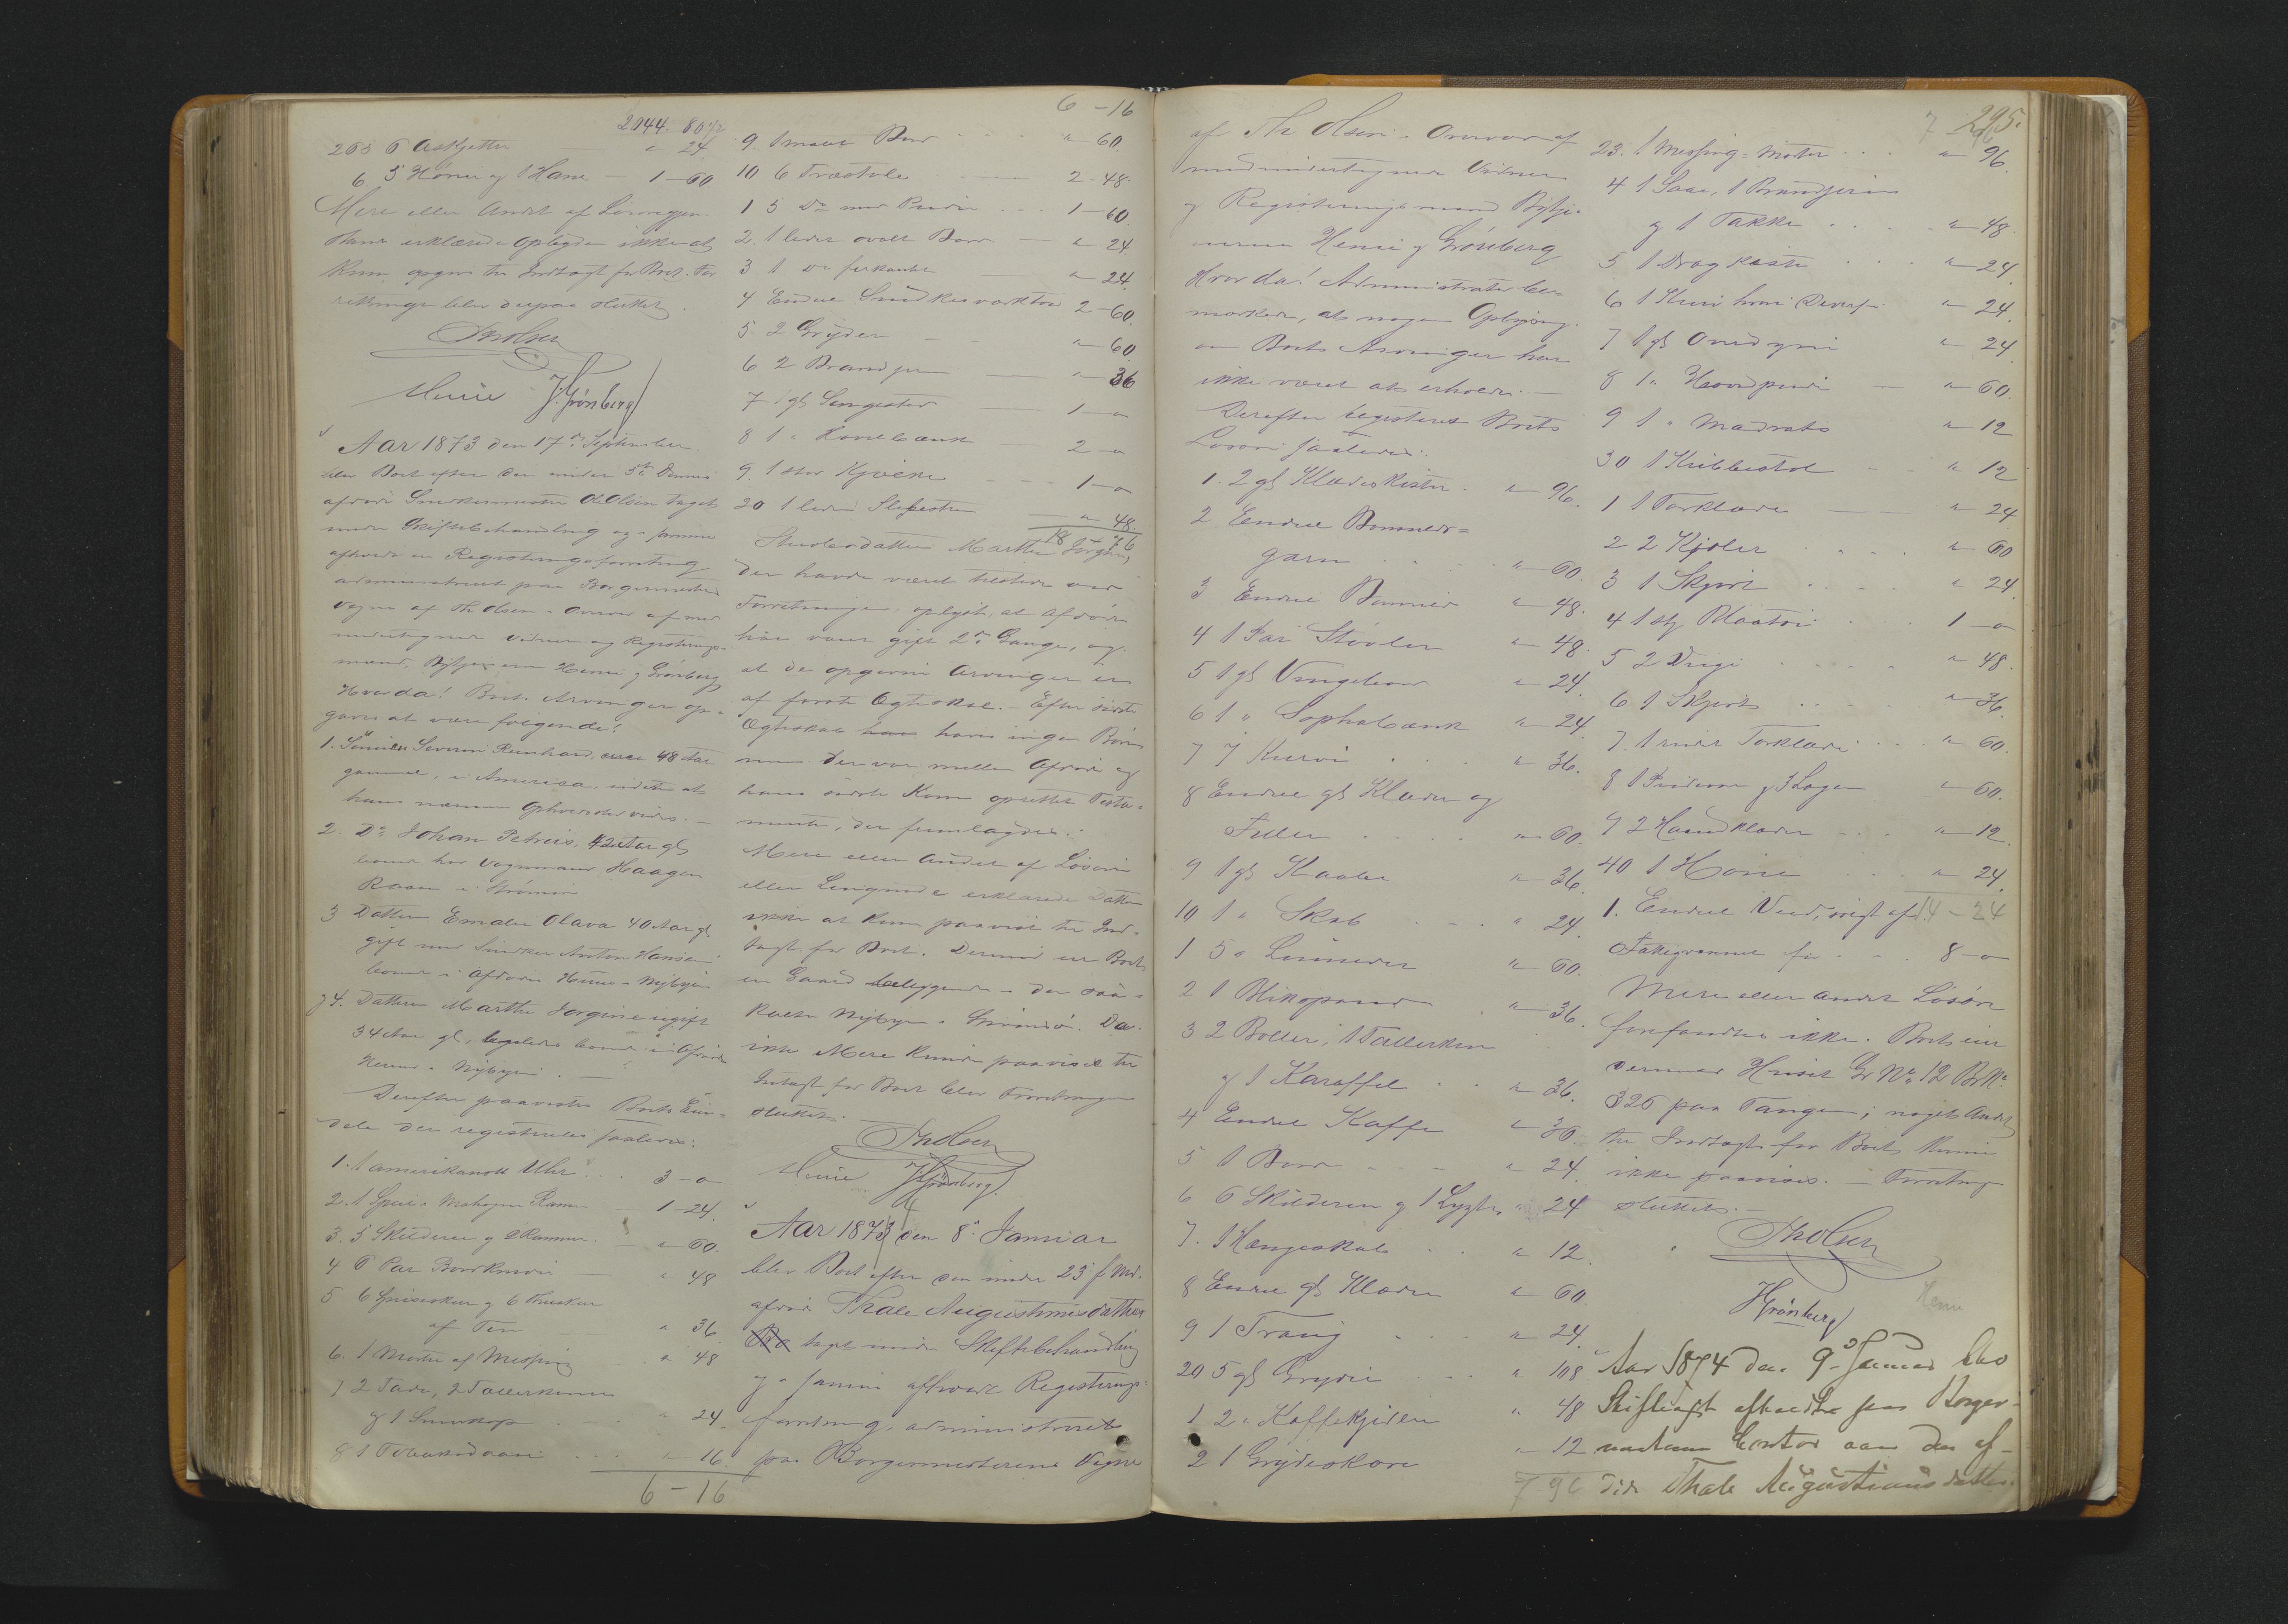 2044 80½
265 6 Askjetter " 24
6 5 Høner og 1 Hane — 1-60
Mere eller Andet af Løsøre
erklærede Opbyderen ikke at
kunne opgive til Indtægt for Boet. For
retningen blev derpaa sluttet.
Th Olsen
Henie J. Grønberg
Aar 1873 den 17de September
blev Boet efter den under 5te Dennes
afdøde Snedkermester O. Olsen taget
under Skiftebehandling og i samme
afholdt en Registreringsforretning
administreret paa Borgermesterens
Vegne af Th Olsen i Overvær af med
undertegnede Vidner og Registrerings-
mænd, Henie og Grønberg
Hvorda! Boets Arvinger op-
gaves at være følgende:
1. Sønnen Severin Reinhard, circa 48 Aar
gammel, i Amerika, uden at
hans nærmere Opholdssted vides. —
2. Do Johan Petreus, 42 Aar gl
boende hos Vognmand Haagen
Raaen i Strømsø
3 Datteren Emalie Olava 40 Aar gl
gift med Snedker Anton Hansen
boende i Afdødes Huus i Nybyen
og 4. Datteren Marthe Jørgine ugift
34 Aar gl, ligeledes boende i Afdødes
Huus i Nybyen. —
Derefter paavistes Boets Eien-
dele der registreredes saaledes:
1. 1 amerikansk Uhr . . . 3-"
2. 1 Speil i Mahogni Ramme — 1-24.
3. 5 Skilderier og 2 Rammer . — " 60.
4 6 Par Bordknive — " 48
5 6 Spiseskeer og 6 Theskeer
af Tin " 36
6. 1 Morter af Messing " 48
7 2 Fade, 2 Tallerkener
og 1 " 24
8 1 Tobaksdaase . . . " 16.
6-16
6-16
9. 1 malt Bord . . . " 60.
10 6 Træstole — 2-48.
1 5 Do med Puder . . . 1-60
2. 1 lidet ovalt Bord — " 24
3 1 Do firkantet " 24
4 Endeel Snedkerværktøi 2-60.
5. 2 Gryder — " 60
6 2 Brandjern — " 36
7 1 gl Sengested — 1-"
8 1 " Høvelbænk — 2-"
9. 1 stor Kjærre — 1-"
20 1 liden Slibesten — " 48.
18 76
Datter Marthe Jørgine,
der havde været tilstede ved
Forretningen, oplyste, at Afdøde
har været gift 2de Gange, og
at de opgivne Arvinger er
af første Ægteskab. — Efter sidste
Ægteskab haves ingen Børn
men der var mellem Afdøde og
hans sidste Kone oprettet Testa-
mente, der fremlagdes.
Mere eller Andet af Løsøre
eller Lignende erklærede Datteren
ikke at kunne paavise til Ind-
tægt for Boet. Derimod eier Boet
en Gaard beliggende i den saa-
kaldte Nybyen i Strømsø. Da
ikke Mere kunde paavises til
Indtægt for Boet blev Forretningen
sluttet.
Th Olsen
Henie J Grønberg
Aar 1873 den 8de Januar
blev Boet efter den under 23 f. Md.
afdøde Thale Augustinusdatter
taget under Skiftebehandling
og i samme afholdt Registrerings-
forretning, administreret
paa Borgermesterens Vegne
7 295.
96
af Th Olsen i Overvær af
medundertegnede Vidner
og Registreringsmænd
Henie og Grønberg
Hvorda! Administrator be-
mærkede, at nogen Oplysning
om Boets Arvinger har
ikke været at erholde. —
Derefter registreredes Boets
Løsøre saaledes:
1. 2 gl Klædeskister . " 96.
2 Endeel Bommulds-
garn . . . " 60.
3 Endeel Bommuld " 48.
4 1 Par Støvler " 48.
5 1 gl Vingebord " 24.
6 1 " Sophabænk " 24.
7 7 Kurve . . . " 36.
8 Endeel gl Klæder og
Filler . . . " 60.
9 1 gl Kaabe " 36.
10 1 " Skab . . . " 24.
1 5 " " 60.
2 1 Blikspand . " 36.
3 2 Boller, 1 Tallerken
og 1 Karaffel . . " 36.
4 Endeel Kaffe " 30.
5 1 Bord — " 24.
6 6 Skilderier og 1 Lygte " 24
7. 1 Hængeskab . . " 12.
8 Endeel gl Klæder " 60
9 1 . . . " 24.
20 5 gl Gryder . . . " 108
1 2 " Kaffekjedler " 48
2 1 Grydeskove " 12
7 96
23. 1 Messing-Morter . . . " 96.
4 1 Saax, 1 Brandjern
og 1 Takke . . . " 48.
5 1 Dragkiste . . . " 24.
6 1 Kurv hvori Diverse " 24.
7 1 gl Overdyne " 24.
8 1 " Hovedpude — " 60.
9 1 " Madrats " 12
30 1 Krikkestol — " 12
1 1 Forklæde — " 24
2 2 Kjoler . . . " 60
3 1 Skjørt . . . " 24.
4 1 . . . 1-"
5 2 . . . " 48.
6 1 Skjørt . . . " 36.
7. 1 Forklæde . . . " 60.
8 1 og 3 Lagen " 60.
9 2 Haandklæder . . . " 12.
40 1 . . . " 24.
14-24
1. Endeel Ved, solgt af
for . . . 8-"
Mere eller Andet Løsøre
forefandtes ikke. Boet eier
derimod Huset Gr No 12 B No
326 paa Tangen; noget Andet
til Indtægt for Boet kunde
ikke paavises. — Forretning
sluttet. —
Th Olsen
J Grønberg Henie
Aar 1874 den 9de Januar blev
Skifteret afholdt paa Borger-
mesterens Contor i den af-
døde Thale Augustinusdatters